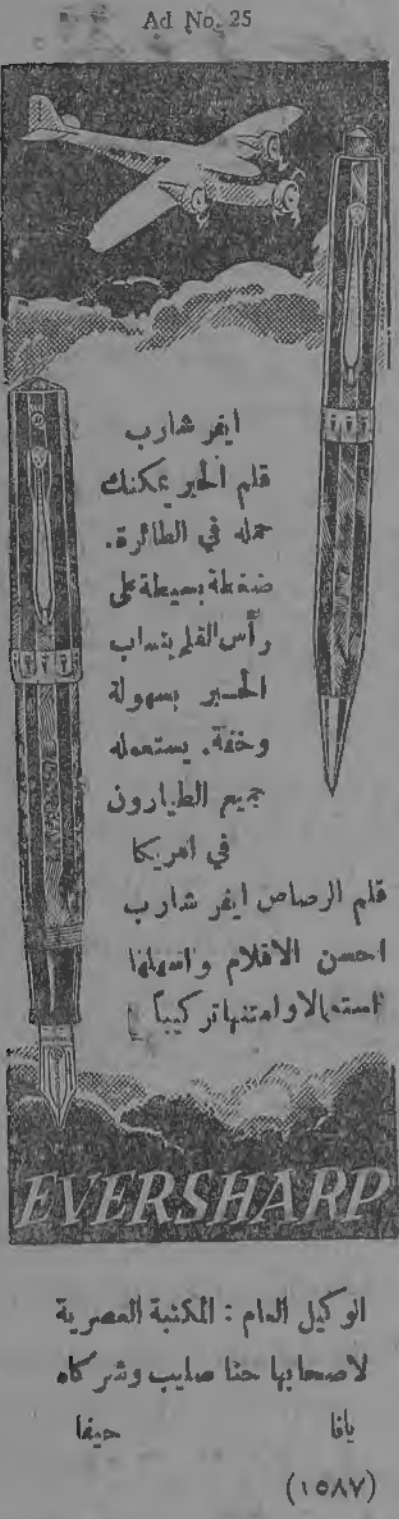 Ad No. 25
ايفر شارب
قلم الحبر يمكنك
حمله في الطائرة.
ضغطة بسيطة على
رأس القلم ينساب
الحبر بسهولة
وخفة. يستعمله
جميع الطيارون
في امريكا
قلم الرصاص ايفر شارب
احسن الاقلام واسهلها
استعمالا وامتنها تركيباً
EVERSHARP
الوكيل العام : المكتبة العصرية
لاصحابها حنا صليب وشركاه
يافا حيفا
(١٥٨٧)